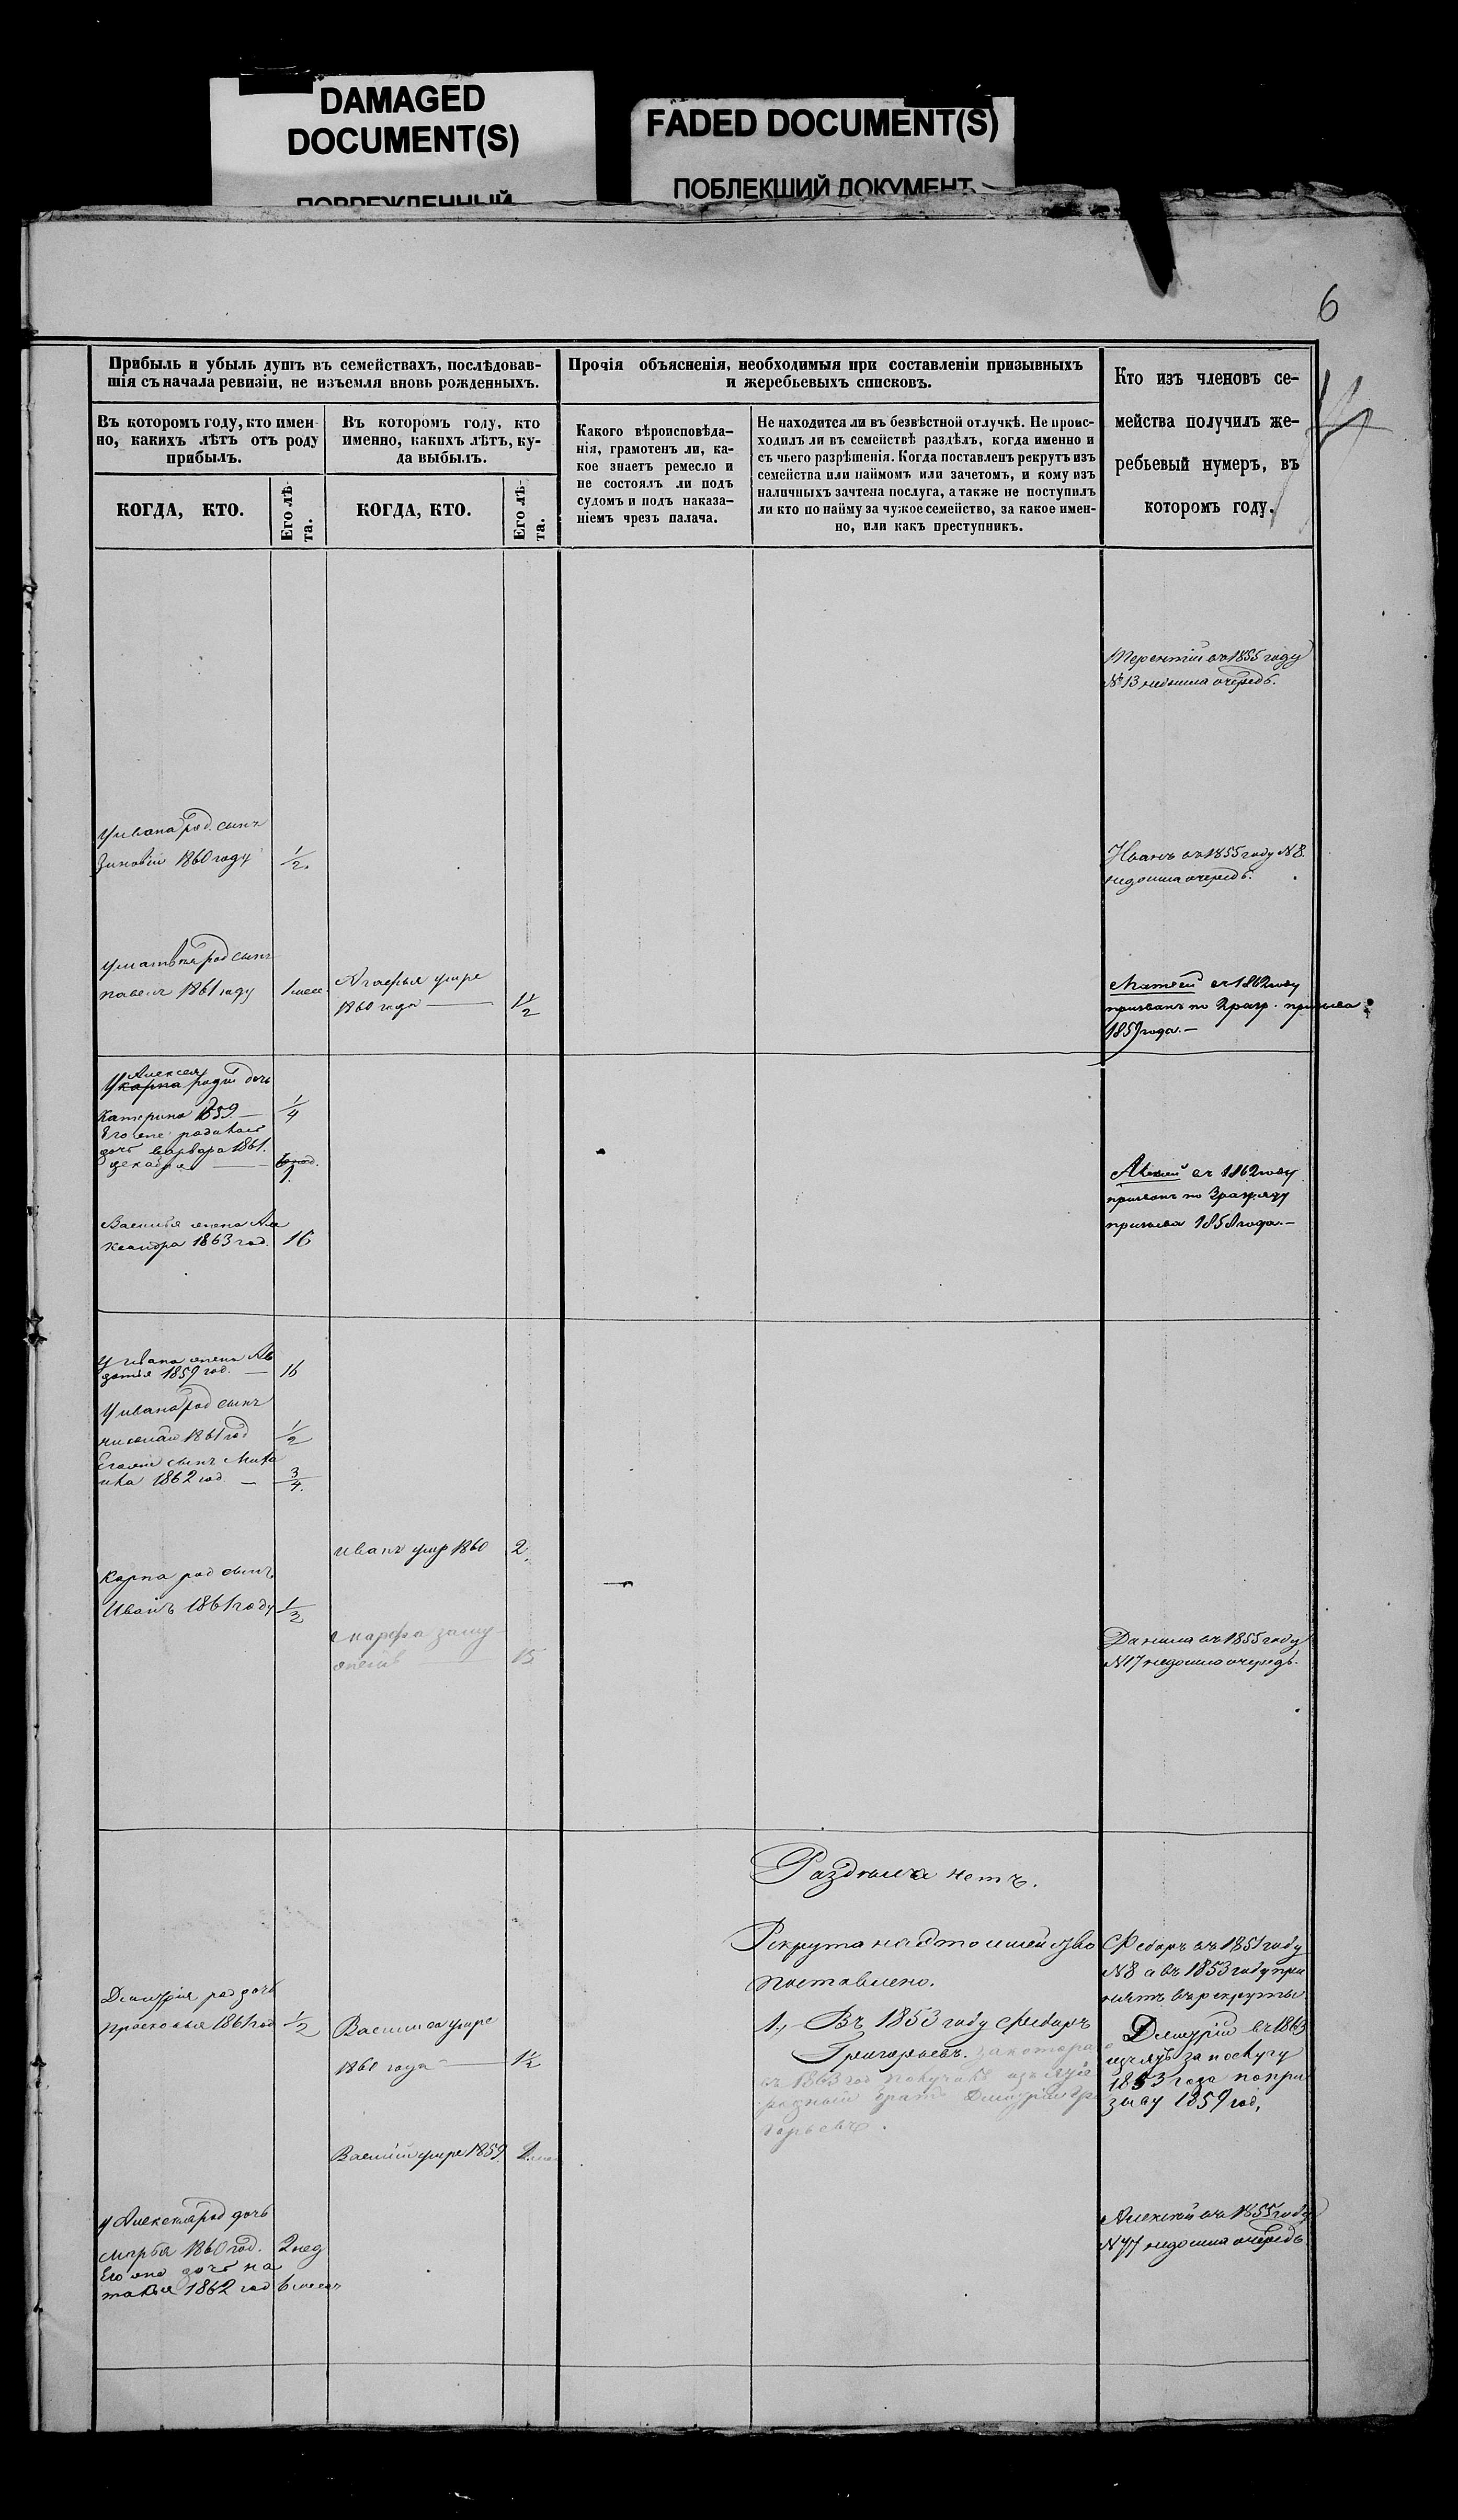 DAMAGED
DOCUMENT(S)
ПОВРЕЖДЕННЫЙ
FADED DOCUMENT(S)
ПОБЛЕКШИЙ ДОКУМЕНТ
6
Прибыль и убыль душъ въ семействахъ, послѣдовав-
шія съ начала ревизіи, не изъемля вновь рожденныхъ.
Въ которомъ году, кто имен-
но, какихъ лѣтъ отъ роду
прибылъ.
КОГДА, КТО.
Его лѣ-
та.
Въ которомъ году, кто
именно, какихъ лѣтъ, ку-
да выбылъ.
КОГДА, КТО.
Его лѣ-
та.
Прочія объясненія, необходимыя при составленіи призывныхъ
и жеребьевыхъ списковъ.
Какого вѣроисповѣда-
нія, грамотенъ ли, ка-
кое знаетъ ремесло и
не состоялъ ли подъ
судомъ и подъ наказа-
ніемъ чрезъ палача.
Не находится ли въ безвѣстной отлучкѣ. Не проис-
ходилъ ли въ семействѣ раздѣлъ, когда именно и
съ чьего разрѣшенія. Когда поставленъ рекрутъ изъ
семейства или наймомъ или зачетомъ, и кому изъ
наличныхъ зачтена послуга, а также не поступилъ
ли кто по найму за чужое семейство, за какое имен-
но, или какъ преступникъ.
Кто изъ членовъ се-
мейства получилъ же-
ребьевый нумеръ, въ
которомъ году.
Терентій въ 1855 году
№ 13 недошла очередь.
У ивана род. сынъ
Зиновій 1860 году 1/2
Иванъ въ 1855 году № 8.
недошла очередь.
У матвея род сынъ
павелъ 1861 году 1 мес.
Агафья умре
1860 года — 1 1/2
Матвей въ 1862 году
призванъ по 2 разр. призыва
1859 года. —
Алексея
У карпа роди дочь
Катерина 1859 — 1/4
Его же родилась
дочь варвара 1861.
декабря —
Алексей въ 1862 году
призванъ по 3 разряду
призыва 1858 года. —
Василья жена Але
ксандра 1863 год. 16
У ивана жена Ав
дотья 1859 год. — 16
У ивана род сынъ
николай 1861 год 1/2
Его же сынъ Миха
ила 1862 год. — 3/4
иванъ умр 1860 2
Карпа род сынъ
Иванъ 1861 году 1/2
Марфа заму-
жемъ 15
Данила въ 1855 году
№ 17 недошла очередь.
Раздела нетъ.
Рекрута на это семейство
поставлено.
1., — Въ 1853 году Федоръ
Григорьевъ. за котораго
въ 1863 год получилъ
родной братъ Дмитрий Гри
горьевъ.
Федоръ въ 1851 году
№ 8 а въ 1853 году при
нятъ въ рекруты
Дмитрій въ 1863
изъятъ за послугу
1853 года по при
зыву 1859 год,
Дмитрія род дочь
прасковья 1861 год 1/2
Василиса умре
1860 года — 1 1/2
Василій умре 1859
У Алексея род дочь
Марфа 1860 год. 2 нед
Его же дочь на
талья 1862 год 6 месяц
Алексей въ 1855 году
№ 47 недошла очередь